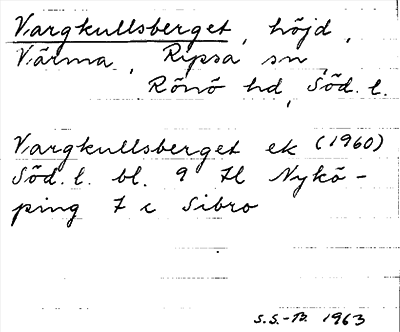 Vargkullsberget, höjd,
Värma, Ripsa sn,
Rönö hd, Söd. l.
Vargkullsberget ek (1960)
Söd. l. bl. 9 H Nykö-
ping 7 c Sibro
S.S.-B. 1963